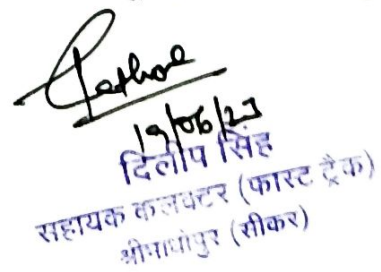 Rathore
19/06/23
दिलीप सिंह
सहायक कलक्टर (फास्ट ट्रैक)
श्रीमाधोपुर (सीकर)